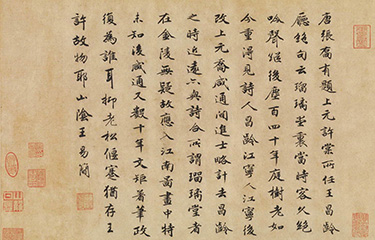 唐張喬有題上元許棠所任王昌齡
廳絕句云瑠璃堂裏當時客久絕
吟聲繼後塵百四十年庭樹老如
今重得見詩人昌齡江寧人江寧後
改上元喬咸通間進士略計去昌齡
之時近遠亦與詩合所謂瑠璃堂者
在金陵無疑故應入江南畫中特
未知後咸通又數十年文矩著筆政
復為誰耳柳老松偃蹇猶存王
許故物耶山陰王易簡